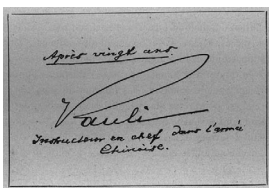 Après vingt ans.
Pauli
Instructeur en chef dans l'armée
Chinoise.